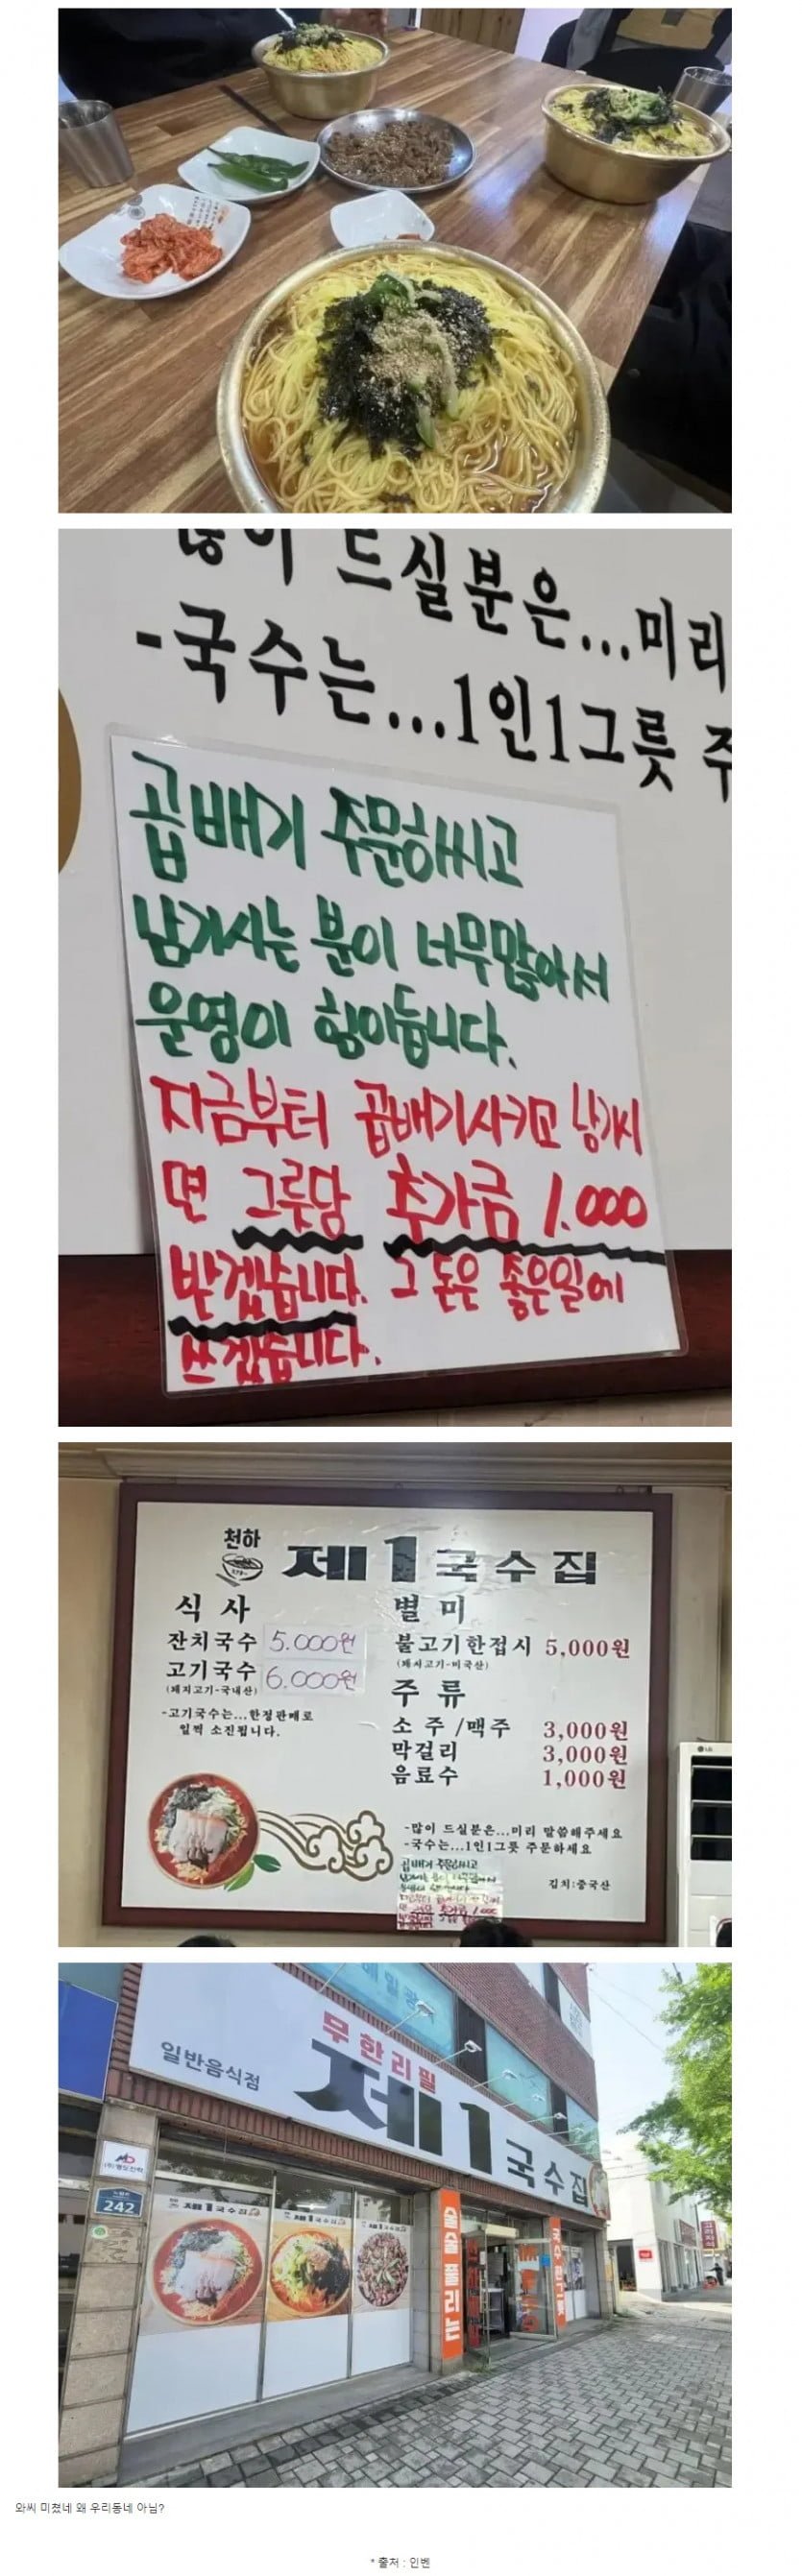 많이 드실분은...미리
-국수는...1인1그릇 주
곱배기 주문하씨고
남기시는 분이 너무많아서
운영이 힘이듭니다.
지금부터 곱배기시키고 남기시
면 그릇당 추가금 1.000
받겠습니다. 그 돈은 좋은일에
쓰겠습니다.
천하
제1국수집
식사
잔치국수 5.000원
고기국수 6.000원
(돼지고기-국내산)
-고기국수는...한정판매로
일찍 소진됩니다.
별미
불고기한접시 5,000원
(돼지고기-미국산)
주류
소주/맥주 3,000원
막걸리 3,000원
음료수 1,000원
-많이 드실분은...미리 말씀해주세요
-국수는...1인1그릇 주문하세요
곱배기 주문하씨고
남기시는 분이 너무많아서
운영이 힘이듭니다.
김치:중국산
LG
무한리필
일반음식점
제1국수집
242
제1국수집
제1국수집
제1국수집
술술 풀리는
와씨 미쳤네 왜 우리동네 아님?
* 출처 : 인벤